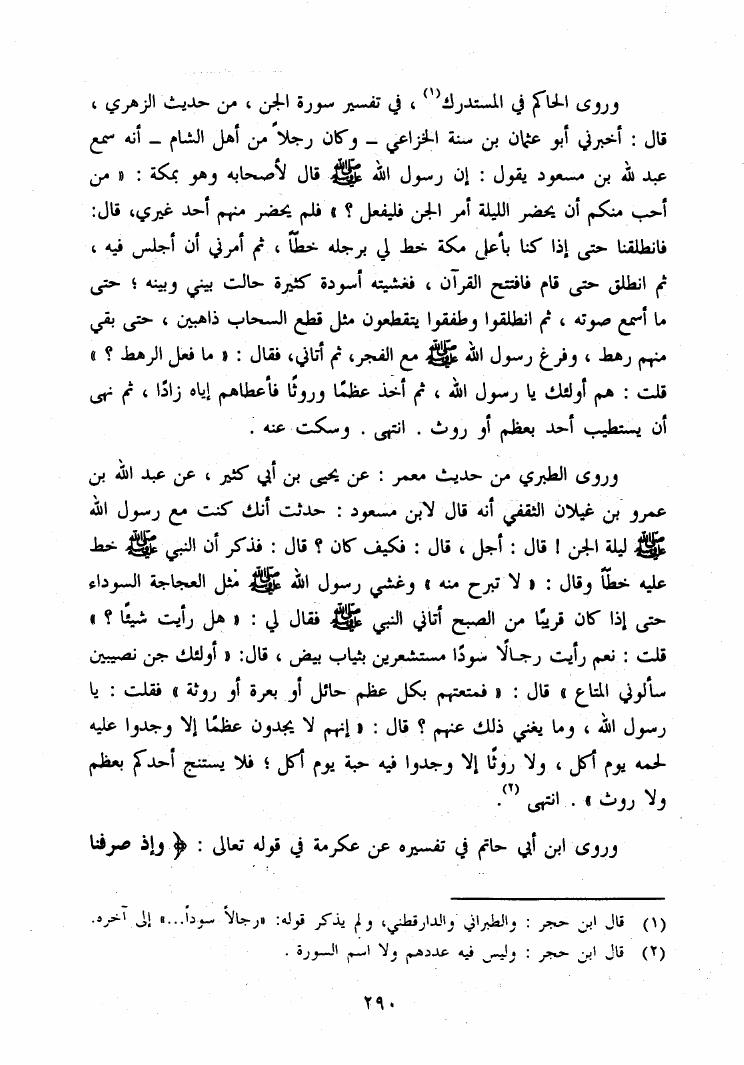 وروى الحاكم في المستدرك(١) ، في تفسير سورة الجن ، من حديث الزهري ،
قال : أخبرني أبو عثمان بن سنة الخزاعي – وكان رجلاً من أهل الشام – أنه سمع
عبد لله بن مسعود يقول : إن رسول الله ﷺ قال لأصحابه وهو بمكة : « من
أحب منكم أن يحضر الليلة أمر الجن فليفعل ؟ » فلم يحضر منهم أحد غيري، قال:
فانطلقنا حتى إذا كنا بأعلى مكة خط لي برجله خطّاً ، ثم أمرني أن أجلس فيه ،
ثم انطلق حتى قام فافتتح القرآن ، فغشيته أسودة كثيرة حالت بيني وبينه ؛ حتى
ما أسمع صوته ، ثم انطلقوا وطفقوا يتقطعون مثل قطع السحاب ذاهبين ، حتى بقي
منهم رهط ، وفرغ رسول الله ﷺ مع الفجر، ثم أتاني، فقال : « ما فعل الرهط ؟ »
قلت : هم أولئك يا رسول الله ، ثم أخذ عظمًا وروثًا فأعطاهم إياه زادًا ، ثم نهى
أن يستطيب أحد بعظم أو روث . انتهى . وسكت عنه .
وروى الطبري من حديث معمر : عن يحيى بن أبي كثير ، عن عبد الله بن
عمرو بن غيلان الثقفي أنه قال لابن مسعود : حدثت أنك كنت مع رسول الله
ﷺ ليلة الجن ! قال : أجل ، قال : فكيف كان ؟ قال : فذكر أن النبي ﷺ خط
عليه خطّاً وقال : « لا تبرح منه » وغشي رسول الله ﷺ مثل العجاجة السوداء
حتى إذا كان قريبًا من الصبح أتاني النبي ﷺ فقال لي : « هل رأيت شيئًا ؟ »
قلت : نعم رأيت رجالًا سودًا مستشعرين بثياب بيض ، قال: « أولئك جن نصيبين
سألوني المتاع » قال : « فمتعتهم بكل عظم حائل أو بعرة أو روثة » فقلت : يا
رسول الله ، وما يغني ذلك عنهم ؟ قال : « إنهم لا يجدون عظمًا إلا وجدوا عليه
لحمه يوم أكل ، ولا روثًا إلا وجدوا فيه حبة يوم أكل ؛ فلا يستنج أحدكم بعظم
ولا روث » . انتهى (٢).
وروى ابن أبي حاتم في تفسيره عن عكرمة في قوله تعالى : ﴿ وإذ صرفنا
(١) قال ابن حجر : والطبراني والدارقطني، ولم يذكر قوله: «رجالاً سوداً...» إلى آخره.
(٢) قال ابن حجر : وليس فيه عددهم ولا اسم السورة .
٢٩٠